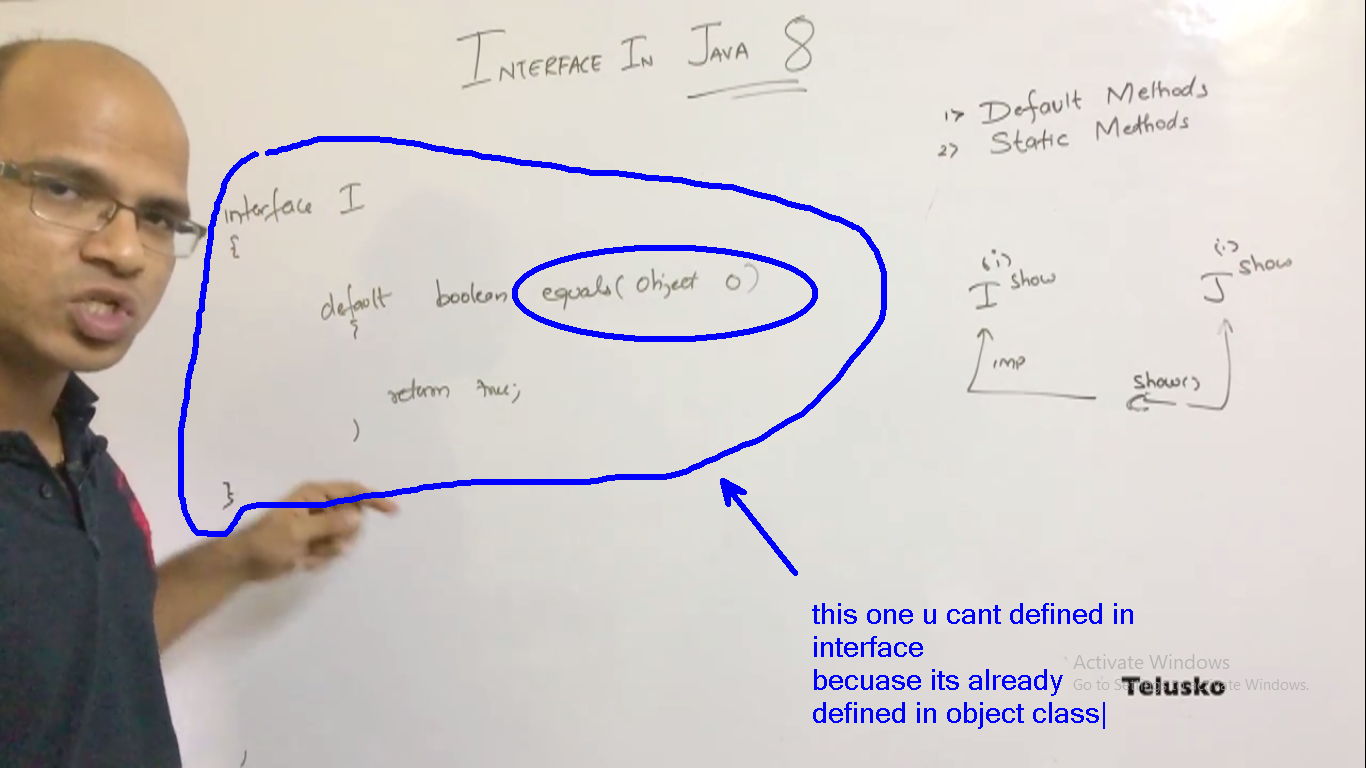 INTERFACE IN JAVA 8
1> Default Methods
2> Static Methods
interface I
{
default boolean equals( Object O )
{
return true;
}
}
(i>
I show
(i>
J show
imp
show()
this one u cant defined in
interface
becuase its already
defined in object class|
Activate Windows
Go to Se
ate Windows.
Telusko